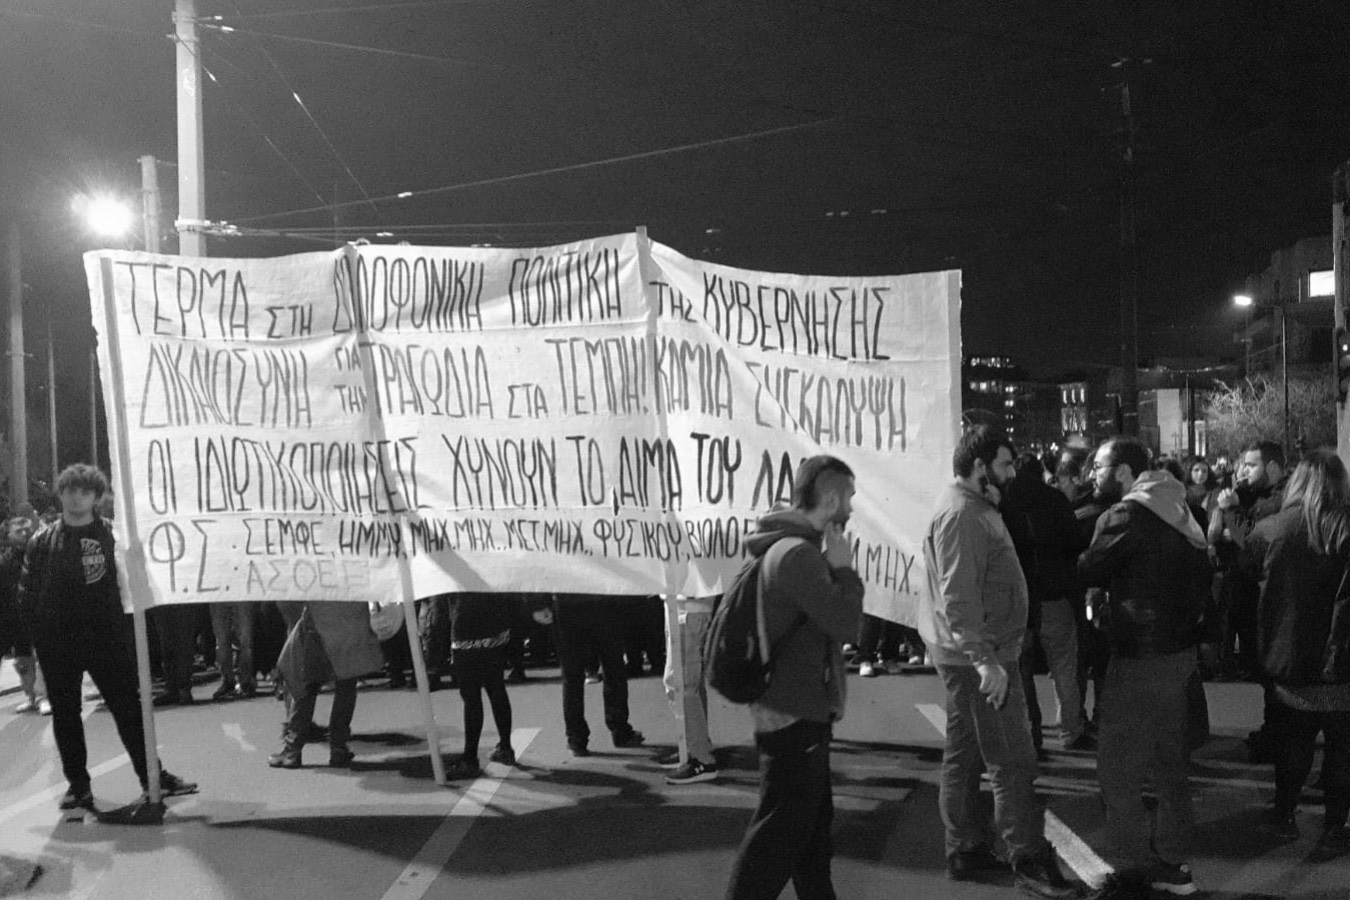 ΤΕΡΜΑ ΣΤΗ ΔΟΛΟΦΟΝΙΚΗ ΠΟΛΙΤΙΚΗ ΤΗΣ ΚΥΒΕΡΝΗΣΗΣ
ΔΙΚΑΙΟΣΥΝΗ ΓΙΑ ΤΗΝ ΤΡΑΓΩΔΙΑ ΣΤΑ ΤΕΜΠΗ! ΚΑΜΙΑ ΣΥΓΚΑΛΥΨΗ
ΟΙ ΙΔΙΩΤΙΚΟΠΟΙΗΣΕΙΣ ΧΥΝΟΥΝ ΤΟ ΑΙΜΑ ΤΟΥ
Φ.Σ. ΣΕΜΦΕ, ΗΜΜΥ, ΜΗΧ.ΜΗΧ., ΜΕΤ.ΜΗΧ., ΦΥΣΙΚΟΥ, ΜΗΧ.
ΑΣΟΕΕ